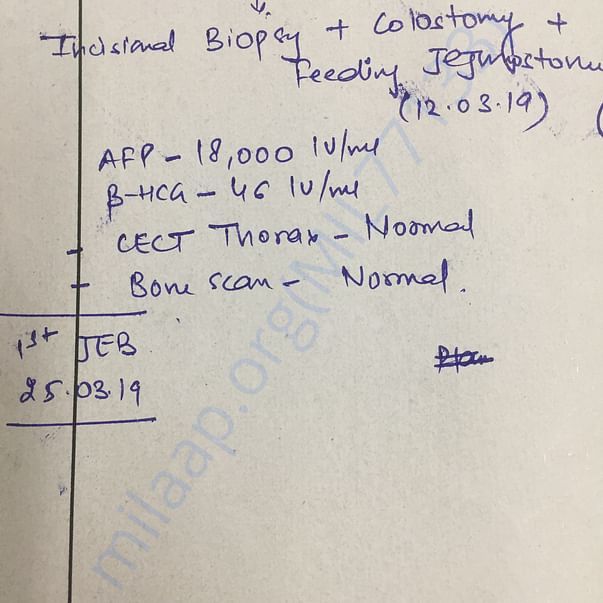 Incisional Biopsy + Colostomy +
Feeding Jejunostomy
(12.03.19) (
AFP - 18,000 IU/ml
β-HCG - 46 IU/ml
- CECT Thorax - Normal
- Bone scan - Normal.
1st JEB
25.03.19
milaap.org(MIL77138)